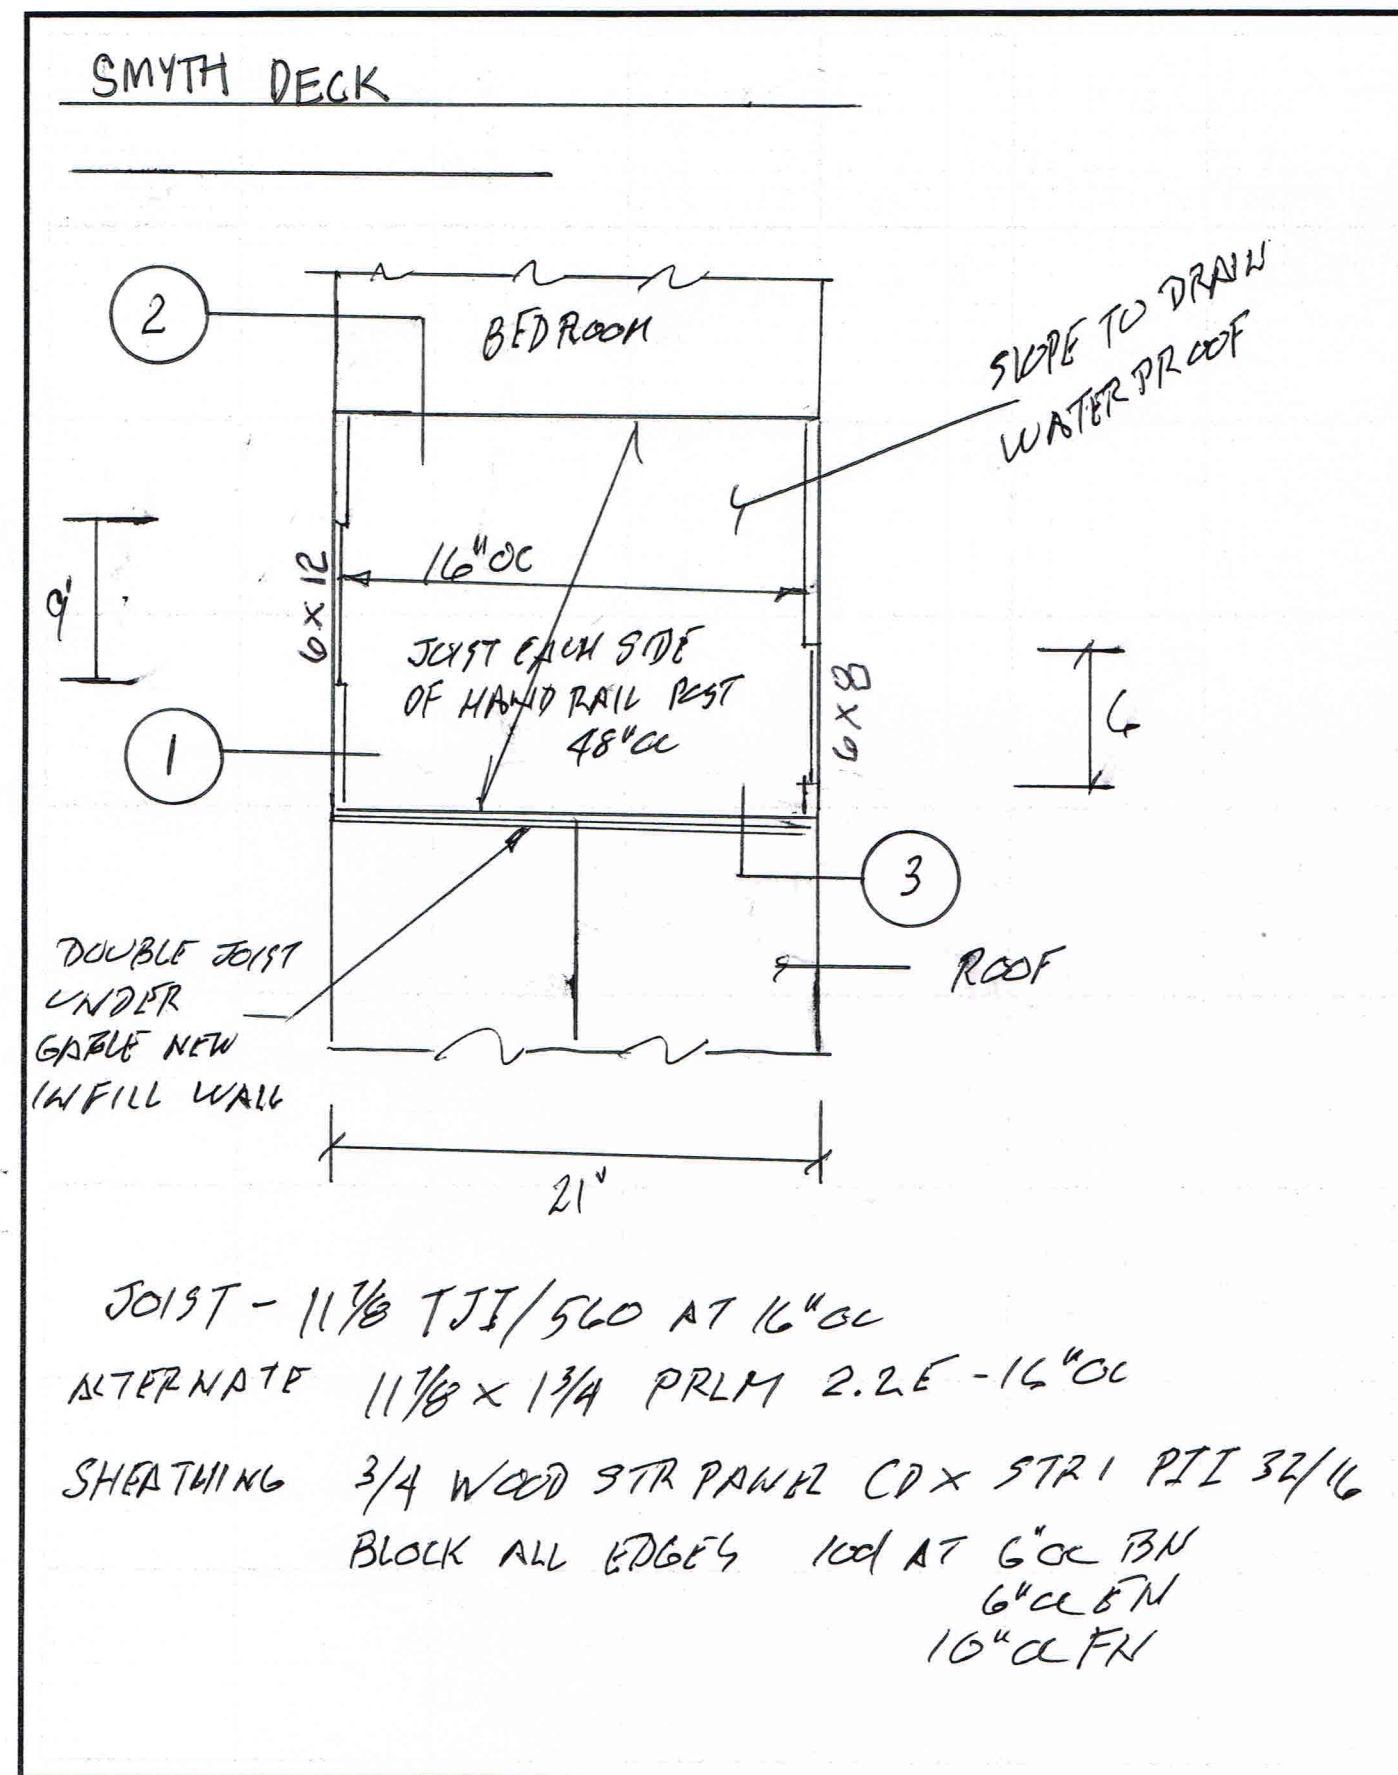 SMYTH DECK
2
BEDROOM
SLOPE TO DRAIN
WATERPROOF
9'
6x12
16"OC
JOIST EACH SIDE
OF HANDRAIL POST
48"OC
6x8
6
1
3
DOUBLE JOIST
UNDER
GABLE NEW
INFILL WALL
ROOF
21'
JOIST - 11 7/8 TJI/560 AT 16"OC
ALTERNATE 11 7/8 x 1 3/4 PRLM 2.2E - 16"OC
SHEATHING 3/4 WOOD STR PANEL CDX STR 1 PII 32/16
BLOCK ALL EDGES 10d AT 6"OC BN
6"OC EN
10"OC FN